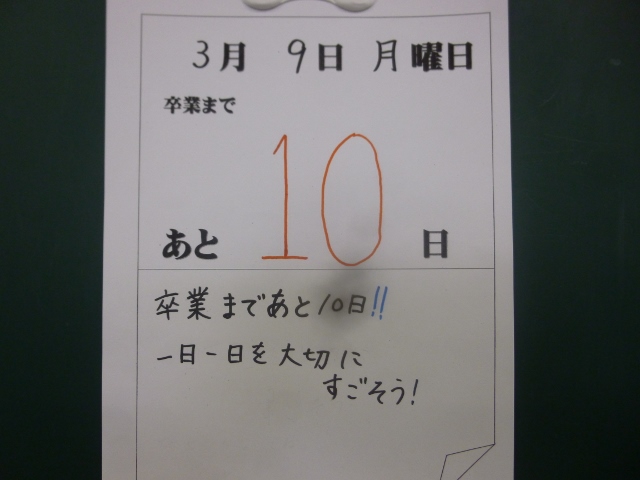 3月 9日 月曜日
卒業まで
あと 10 日
卒業まであと10日!!
一日一日を大切に
すごそう!